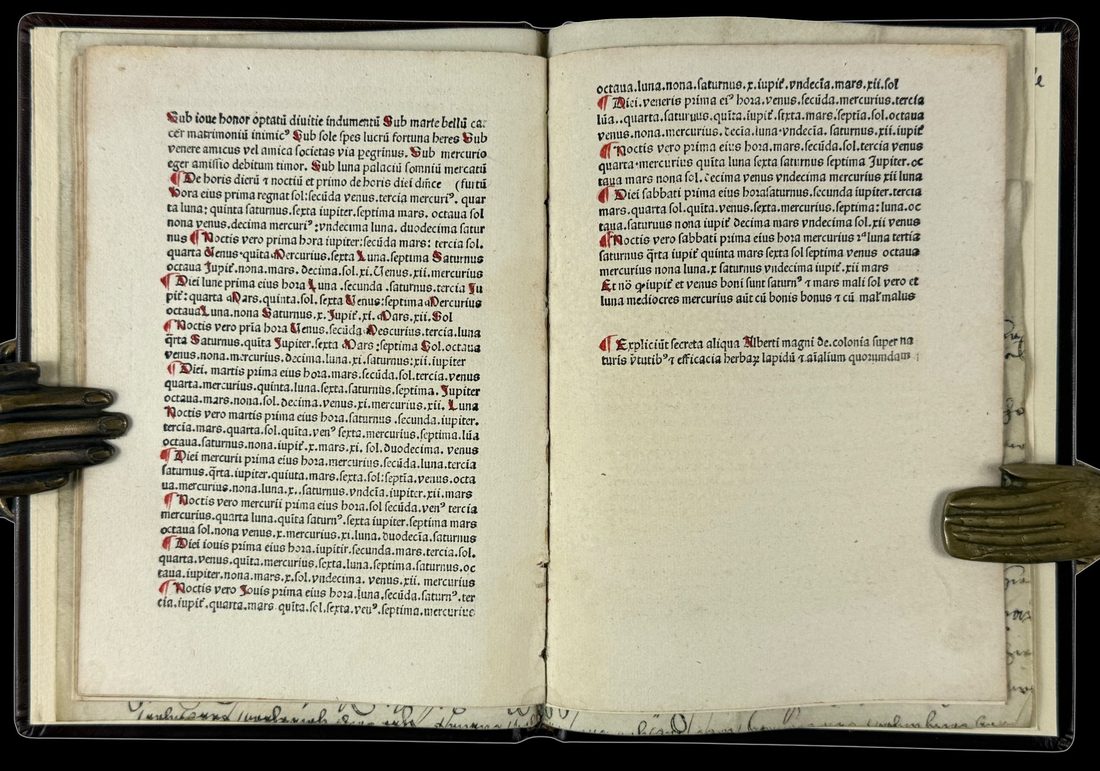 Sub ioue honor optatū diuitie indumentū Sub marte bellū car
cer matrimoniū inimicꝰ Sub sole spes lucrū fortuna heres Sub
venere amicus vel amica societas via ꝑegrinus. Sub mercurio
eger amissio debitum timor. Sub luna palaciū somniū mercatū
¶ De horis dierū ⁊ noctiū et primo de horis diei dn̄ice (furtū
Hora eius prima regnat sol:secūda venus.tercia mercuriꝰ. quar
ta luna: quinta saturnus.sexta iupiter.septima mars. octaua sol
nona venus.decima mercuriꝰ:vndecima luna. duodecima satur
nus ¶ Noctis vero prima hora iupiter:secūda mars: tercia sol.
quarta Venus.quīta Mercurius.sexta Luna.septima Saturnus
octaua Jupit̄.nona.mars. decima.sol.xi.Venus.xii.mercurius
¶ Diei lune prima eius hora Luna .secūda .saturnus.tercia Ju
pit̄: quarta Mars.quinta.sol.sexta Venus:septima Mercurius
octaua Luna.nona Saturnus.x.Jupit̄.xi.Mars.xii.Sol
¶ Noctis vero pr̄ia hora Venus.secūda Mescurius.tercia.luna
q̄rta Saturnus.quīta Jupiter.sexta Mars:septima Sol.octaua
venus.nona.mercurius.decima.luna.xi.saturnus:xii.iupiter
¶ Diei. martis prima eius hora mars.secūda.sol.tercia.venus
quarta.mercurius.quinta.luna.sexta.saturnus.septima. Jupiter
octaua.mars.nona.sol.decima.venus.xi.mercurius.xii. Luna
Noctis vero martis prima eius hora.saturnus .secunda.iupiter.
tercia.mars.quarta.sol.quīta.venꝰ sexta.mercurius.septima.lūa
octaua.saturnus.nona.iupit̄.x.mars.xi. sol. duodecima. venus
¶ Diei mercurii prima eius hora.mercurius.secūda.luna.tercia
saturnus.q̄rta.iupiter.quiuta.mars.sexta.sol:septīa.venus.octa
ua.mercurius.nona.luna.x..saturnus.vndecīa.iupiter.xii.mars
¶ Noctis vero mercurii prima eius hora.sol secūda.venꝰ tercia
mercurius.quarta luna.quīta saturnꝰ.sexta iupiter.septima mars
octaua sol.nona venus.x.mercurius.xi.luna.duodecīa.saturnus
¶ Diei iouis prima eius hora.iupitir.secunda.mars.tercia.sol.
quarta.venus.quīta.mercurius.sexta.luna.septima.saturnus.oc
taua.iupiter.nona.mars.x.sol.vndecima. venus.xii. mercurius
¶ Noctis vero Jouis prima eius hora.luna.secūda.saturnꝰ.ter
cia.iupit̄.quarta.mars quīta.sol.sexta.venꝰ.septima.mercurius
octaua.luna.nona.saturnus.x.iupit̄.vndecīa.mars.xii.sol
¶ Diei.veneris prima eiꝰ hora.venus.secūda.mercurius.tercia
lūa..quarta.saturuus.quīta.iupit̄.sexta.mars.septīa.sol.octaua
venus.nona.mercurius.decīa.luna.vndecīa.saturnus.xii.iupit̄
¶ Noctis vero prima eius hora.mars.secūda.sol.tercia venus
quarta.mercurius quīta luna sexta saturnus septima Jupiter.oc
taua mars nona sol.decima venus vndecima mercurius xii luna
¶ Diei sabbati prima eius horasaturnus.secunda iupiter.tercia
mars.quarta sol.quīta.venus.sexta.mercurius.septima:luna.oc
taua.saturuus nona iupit̄ decima mars vndecima sol.xii venus
¶ Noctis vero sabbati prima eius hora mercurius 2ª luna tertia
saturnus q̄rta iupit̄ quinta mars sexta sol septima venus octaua
mercurius nona luna.x saturnus vndecima iupit̄.xii mars
Et nō ꝙ iupit̄ et venus boni sunt saturnꝰ ⁊ mars mali sol vero et
luna mediocres mercurius aūt cū bonis bonus ⁊ cū mal̄ malus
¶ Expliciūt secreta aliqua Alberti magni de.colonia super na
turis v̄tutibꝰ ⁊ efficacia herbaꝝ lapidū ⁊ aīalium quorumdam :